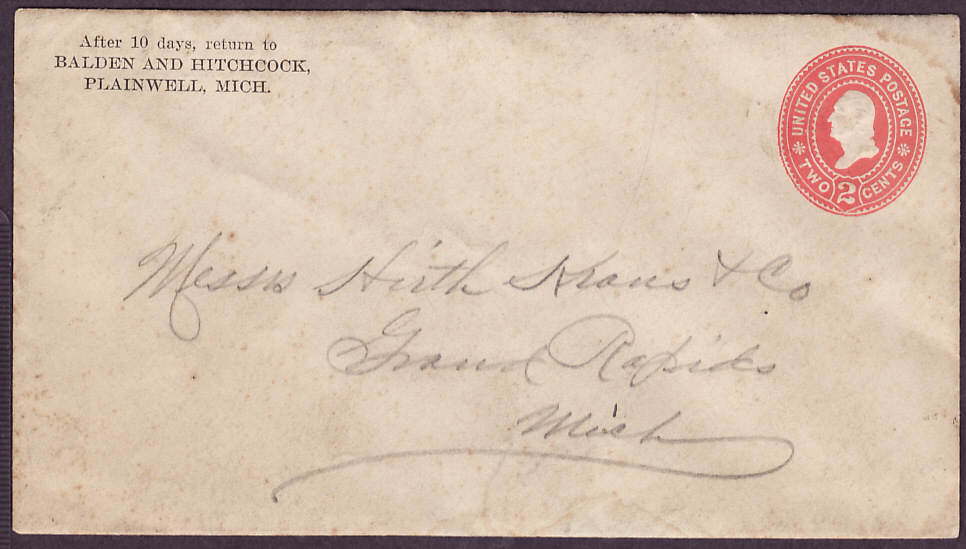 After 10 days, return to
BALDEN AND HITCHCOCK,
PLAINWELL, MICH.
UNITED STATES POSTAGE
TWO 2 CENTS
Messrs Hirth Kraus & Co
Grand Rapids
Mich